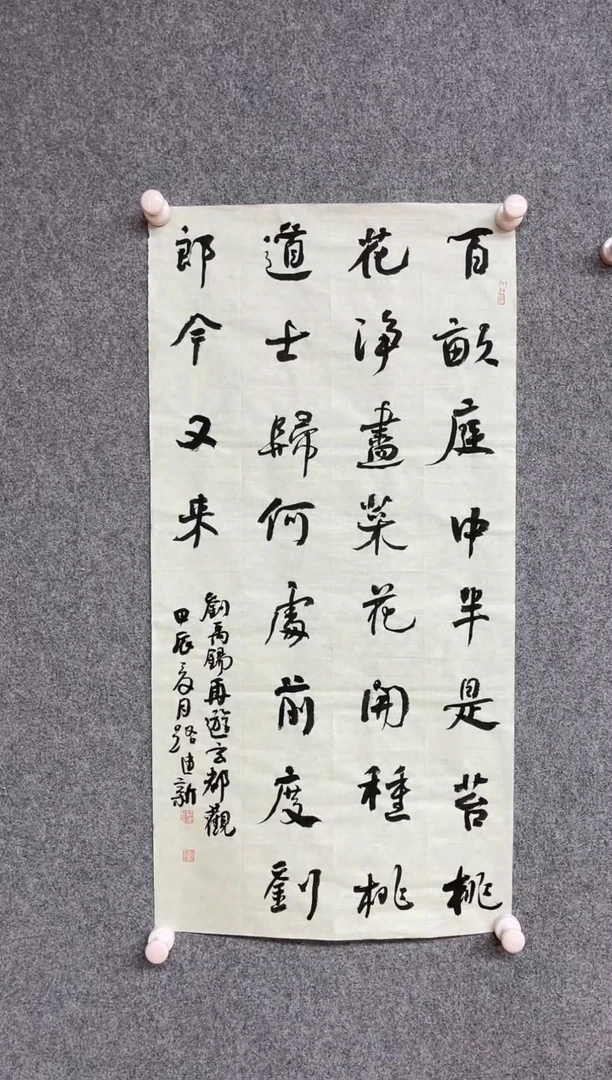 百畝庭中半是苔桃
花淨盡菜花開種桃
道士歸何處前度劉
郎今又来
劉禹錫再遊玄都觀
甲辰夏月路建新